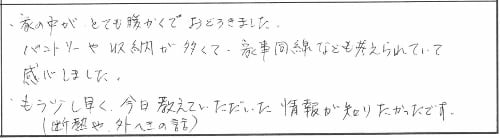 ・家の中が とても暖かくて おどろきました。
パントリーや 収納が 多くて、家事同線なども考えられていて
感心しました。
・もう少し早く、今日教えていただいた 情報が 知りたかったです。
(断熱や、外へきの話)